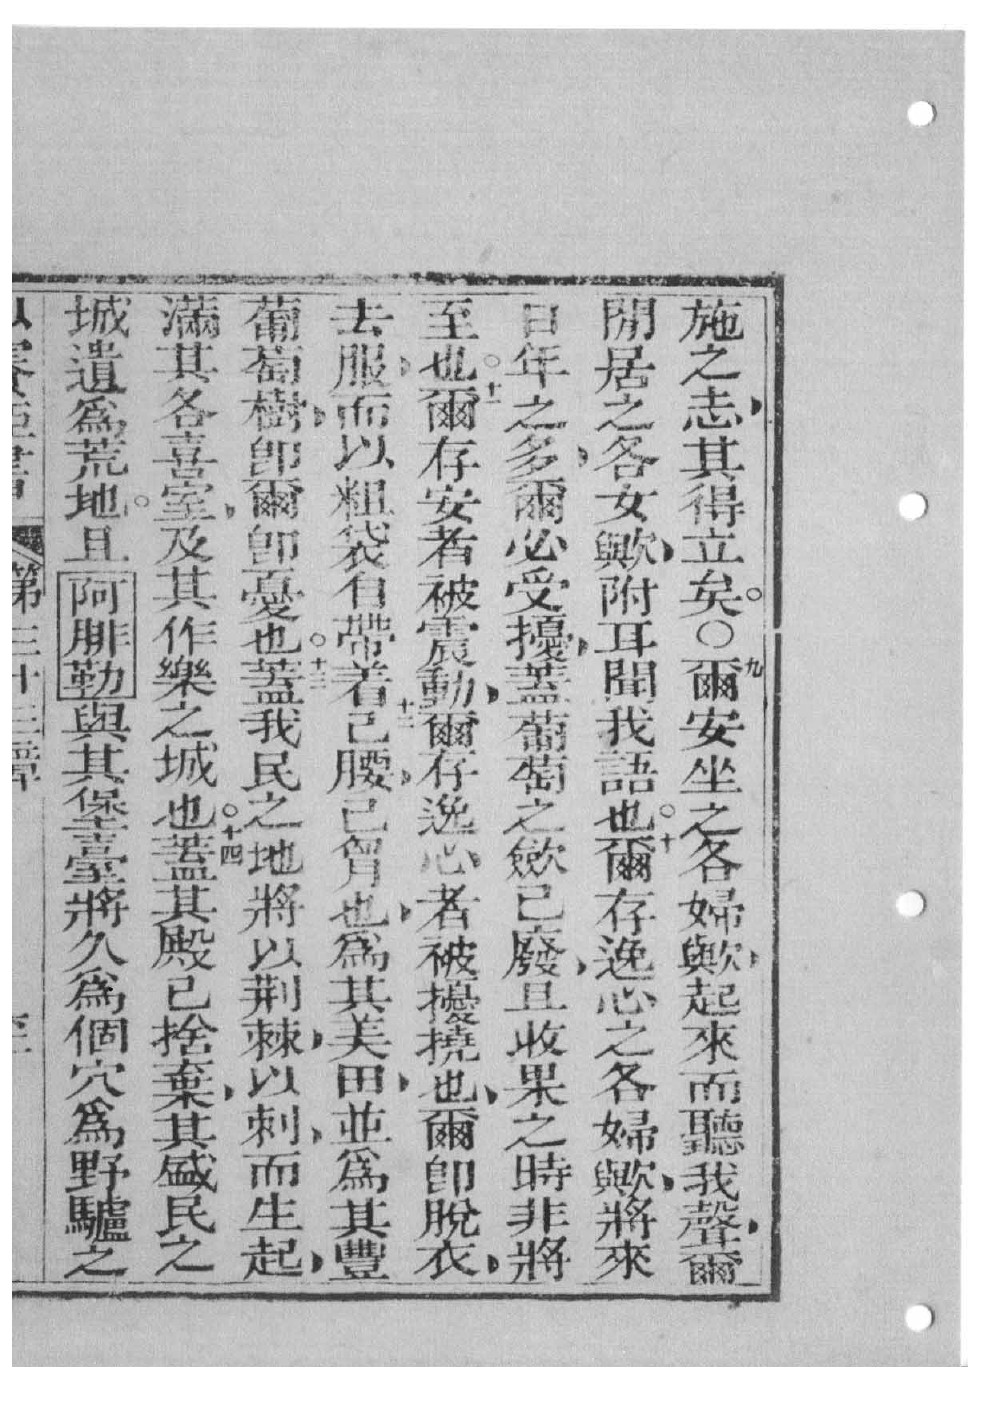 施之志其得立矣。〇九爾安坐之各婦歟起來而聽我聲爾
閒居之各女歟附耳聞我語也。十爾存逸心之各婦歟將來
日年之多爾必受擾蓋葡萄之歛已廢且收果之時非將
至也。十一爾存安者被震動爾存逸心者被擾撓也爾卽脫衣
去服而以粗袋自帶着己腰十二己胷也爲其美田並爲其豐
葡萄樹卽爾卽憂也。十三蓋我民之地將以荆棘以刺而生起
滿其各喜室及其作樂之城也。十四蓋其殿已捨棄其盛民之
城遺爲荒地。且阿腓勒與其堡臺將久爲個穴爲野驢之
第三十二章